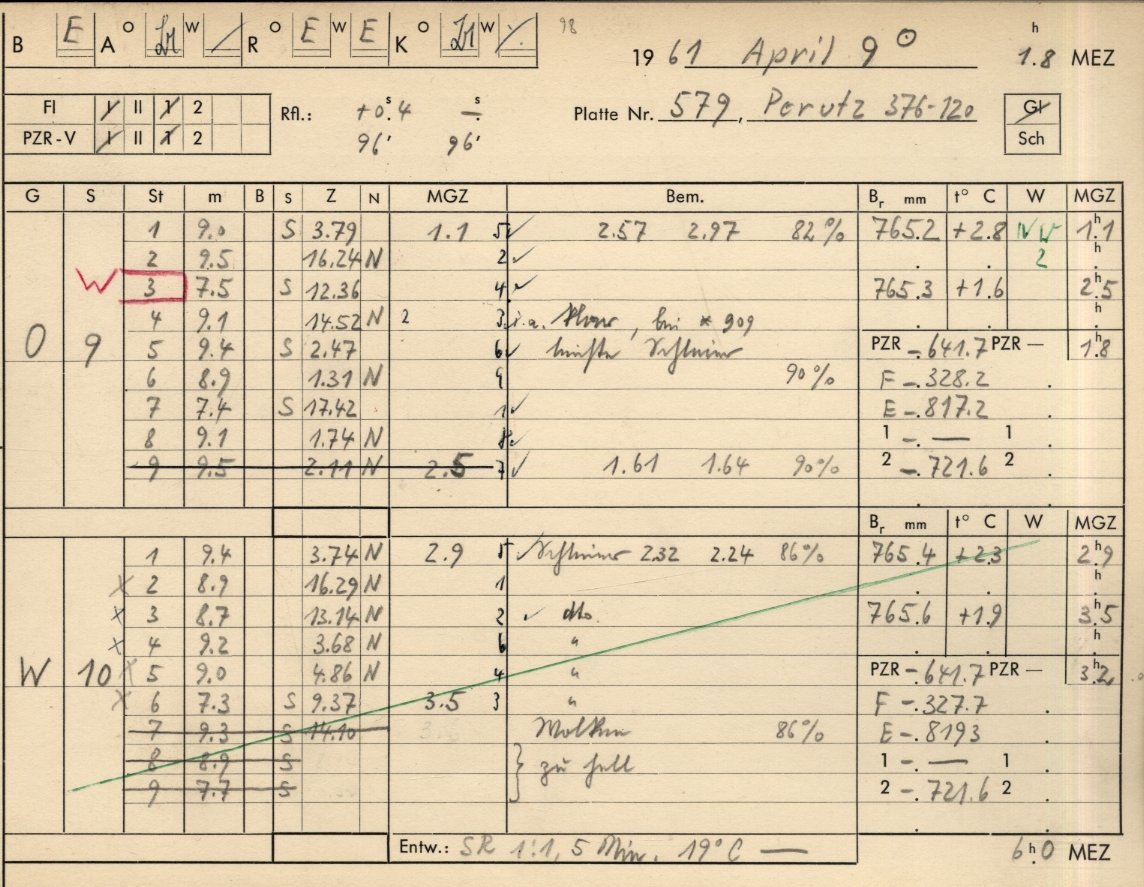 B E A o W R o E W E K o W 98
19 61 April 9 h 1.8 MEZ
Fl I II 1 2 Rfl.: +0s.4 – s Platte Nr. 579, Perutz 376-120 Gl
PZR-V I II 1 2 96' 96' Sch
G S St m B S Z N MGZ Bem. Br mm t° C W MGZ
1 9.0 S 3.79 1.1 5 ✓ 2.57 2.97 82% 765.2 +2.8 NW 1h.1
2 9.5 16.24 N 2 ✓ 2 h
W 3 7.5 S 12.36 4 ✓ 765.3 +1.6 2h.5
4 9.1 14.52 N 2 3 i.a. klar, bei * 909 h
O 9 5 9.4 S 2.47 6 ✓ leichte Schleier PZR –.641.7 PZR – 1h.8
6 8.9 1.31 N 9 90% F –.328.2
7 7.4 S 17.42 1 ✓ E –.817.2
8 9.1 1.74 N 8 ✓ 1 –. — 1
9 9.5 2.11 N 2.5 7 ✓ 1.61 1.64 90% 2 –.721.6 2
Br mm t° C W MGZ
1 9.4 3.74 N 2.9 5 ✓ Schleier 2.32 2.24 86% 765.4 +2.3 2h.9
x 2 8.9 16.29 N 1 h
x 3 8.7 13.14 N 2 ✓ dto. 765.6 +1.9 3h.5
x 4 9.2 3.68 N 6 " h
W 10 x 5 9.0 4.86 N 4 " PZR –.641.7 PZR – 3h.2
x 6 7.3 S 9.37 3.5 3 " F –.327.7
7 9.3 S 14.10 Wolken 86% E –.8193
8 8.9 S } zu hell 1 –. — 1
9 7.7 S 2 –.721.6 2
Entw.: SR 1:1, 5 Min, 19°C — 6h.0 MEZ